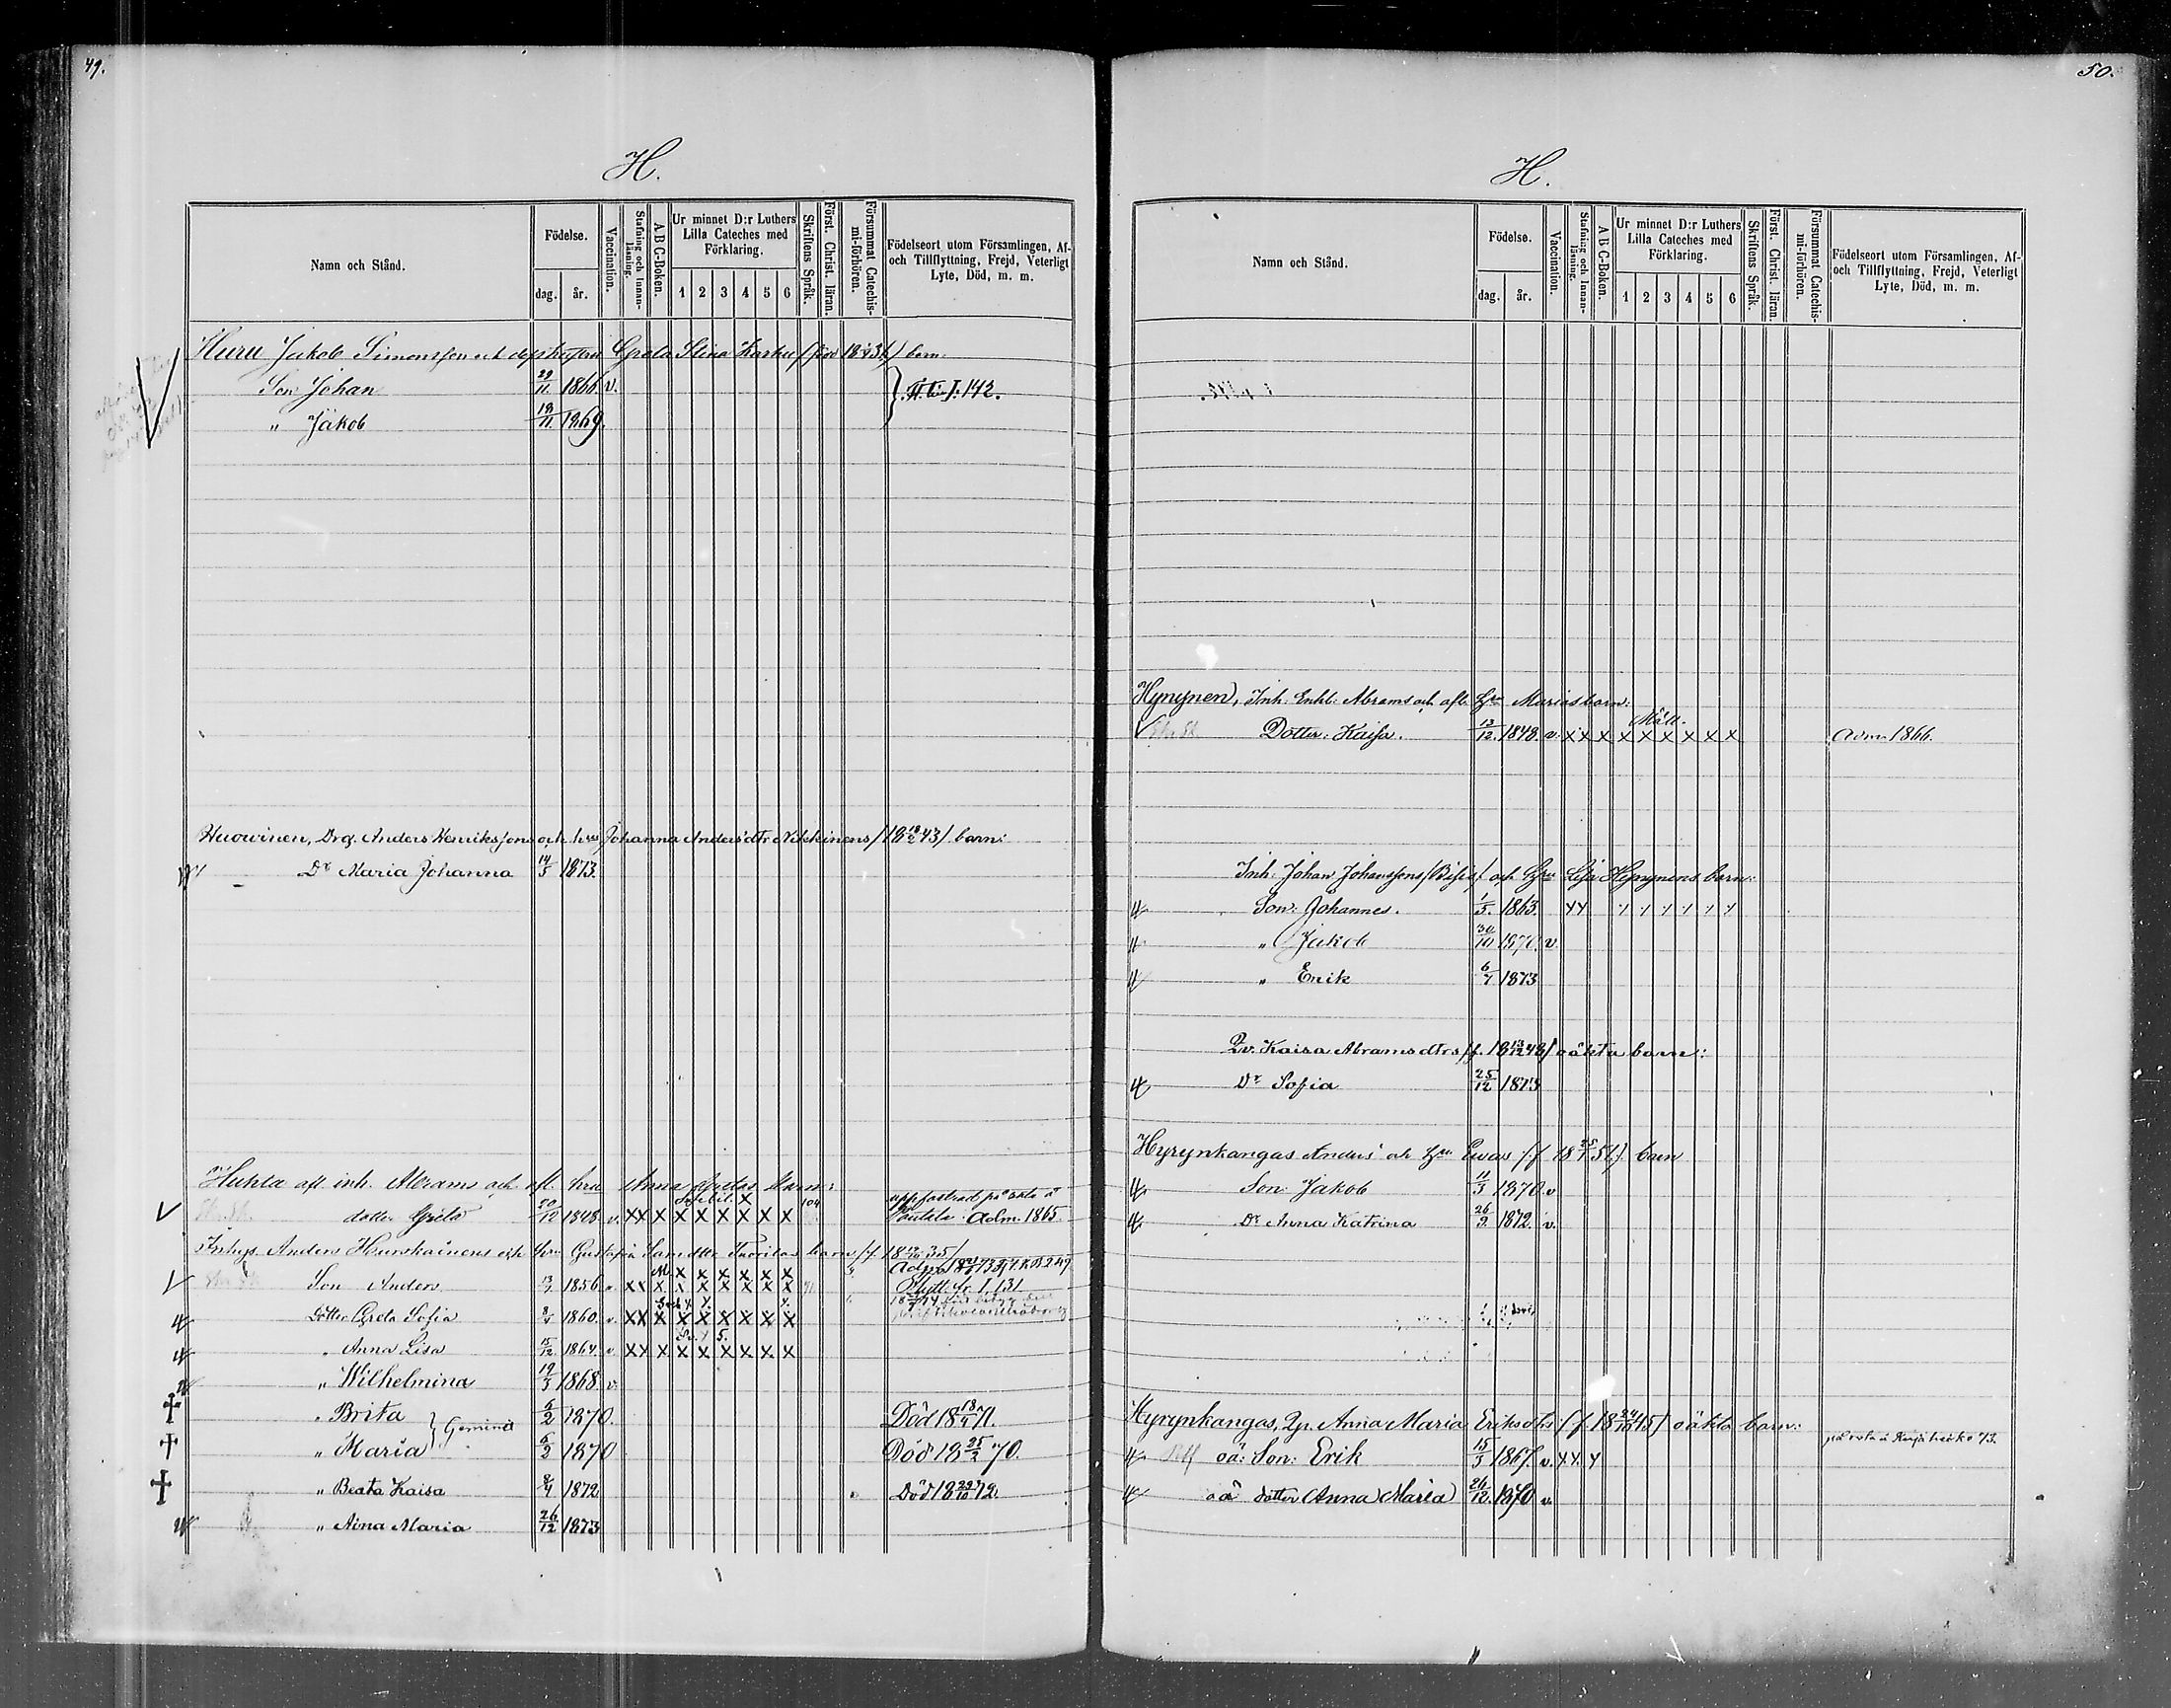 49.
H.
Namn och Stånd.
Födelse.
dag.
år.
Vaccination.
Stafning och Innan-läsning.
A B C-Boken.
Ur minnet D:r Luthers Lilla Cateches med Förklaring.
1 2 3 4 5 6
Skriftens Språk.
Först. Christ. läran.
Försummat Catechis-mi-förhören.
Födelseort utom Församlingen, Af- och Tillflyttning, Frejd, Veterligt Lyte, Död, m. m.
Huru Jakob Simonsson och dess hustru Greta Stina Karhu barn:
Son Johan 29/11 1866. v. I. 142.
" Jakob 19/11 1869.
Huowinen, Drg. Anders Henrikssons och hru Johanna Anders dtr Nikkinens /18 18/2 43/ barn:
Dr Maria Johanna 14/5 1873.
Huhta afl. inh. Abrams och afl. hru Anna barn:
dotter Greta 20/12 1848. v. x x x x x x x x x Adm. 1865.
Inhys. Anders Hurskainens och hru Gustafva barn
Son Anders 13/7 1856. v. x x x x x x x x x Flytt. fr. I. 131
Dotter Greta Sofia 8/4 1860. v. x x x x x x x x x
" Anna Lisa 15/12 1864. v x x x x x x x x x
" Wilhelmina 19/3 1868. v.
" Brita 6/2 1870. Död 18 18/4 71.
" Maria 6/2 1870 Död 18 25/2 70.
" Beata Kaisa 8/4 1872 Död 18 29/10 72.
" Aina Maria 26/12 1873
50.
H.
Namn och Stånd.
Födelse.
dag.
år.
Vaccination.
Stafning och Innan-läsning.
A B C-Boken.
Ur minnet D:r Luthers Lilla Cateches med Förklaring.
1 2 3 4 5 6
Skriftens Språk.
Först. Christ. läran.
Försummat Catechis-mi-förhören.
Födelseort utom Församlingen, Af- och Tillflyttning, Frejd, Veterligt Lyte, Död, m. m.
Hynynen, Inh. Enkl. Abrams och afl. Hru Marias barn:
Dotter: Kaisa. 13/12. 1848. v. x x x x x x x x x Adm. 1866.
Inh. Johan Johanssons och Hru Lisa Hynynens barn:
Son: Johannes. 1/5. 1863.
" Jakob 30/10 1870. v.
" Erik 6/7 1873
Qv. Kaisa Abramsdtrs /f. 18 13/12 48/ oäkta barn:
Dr Sofia 25/12 1873
Hyrynkangas Anders' och Hru Ewas barn
Son Jakob 11/3 1870. v
Dr Anna Katrina 26/9. 1872. v.
Hyrynkangas, Qv. Anna Maria Eriksdtrs oäkta barn:
oä: Son: Erik 15/5 1867. v.
oä dotter Anna Maria 26/12. 1870 v.